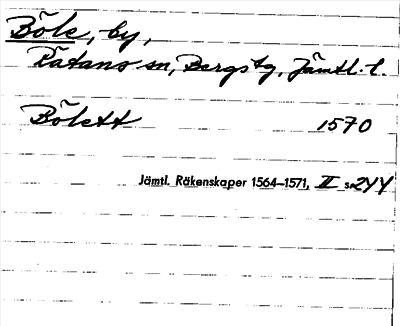 Böle, by,
Rätans sn, Bergs tg, Jämtl. l.
Bölett 1570
Jämtl. Räkenskaper 1564–1571, II s. 244